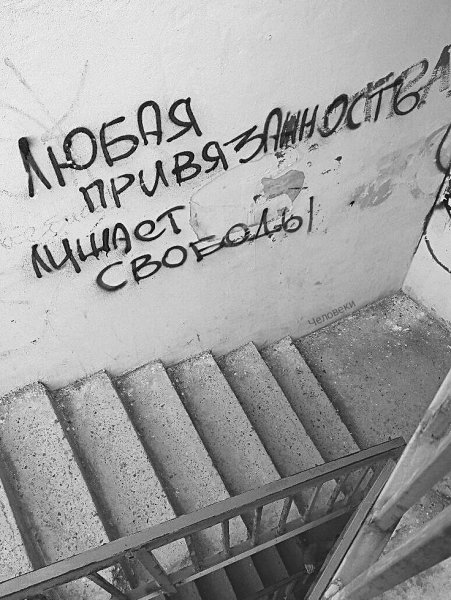 ЛЮБАЯ
ПРИВЯЗАННОСТЬ
ЛИШАЕТ
СВОБОДЫ
Человеки